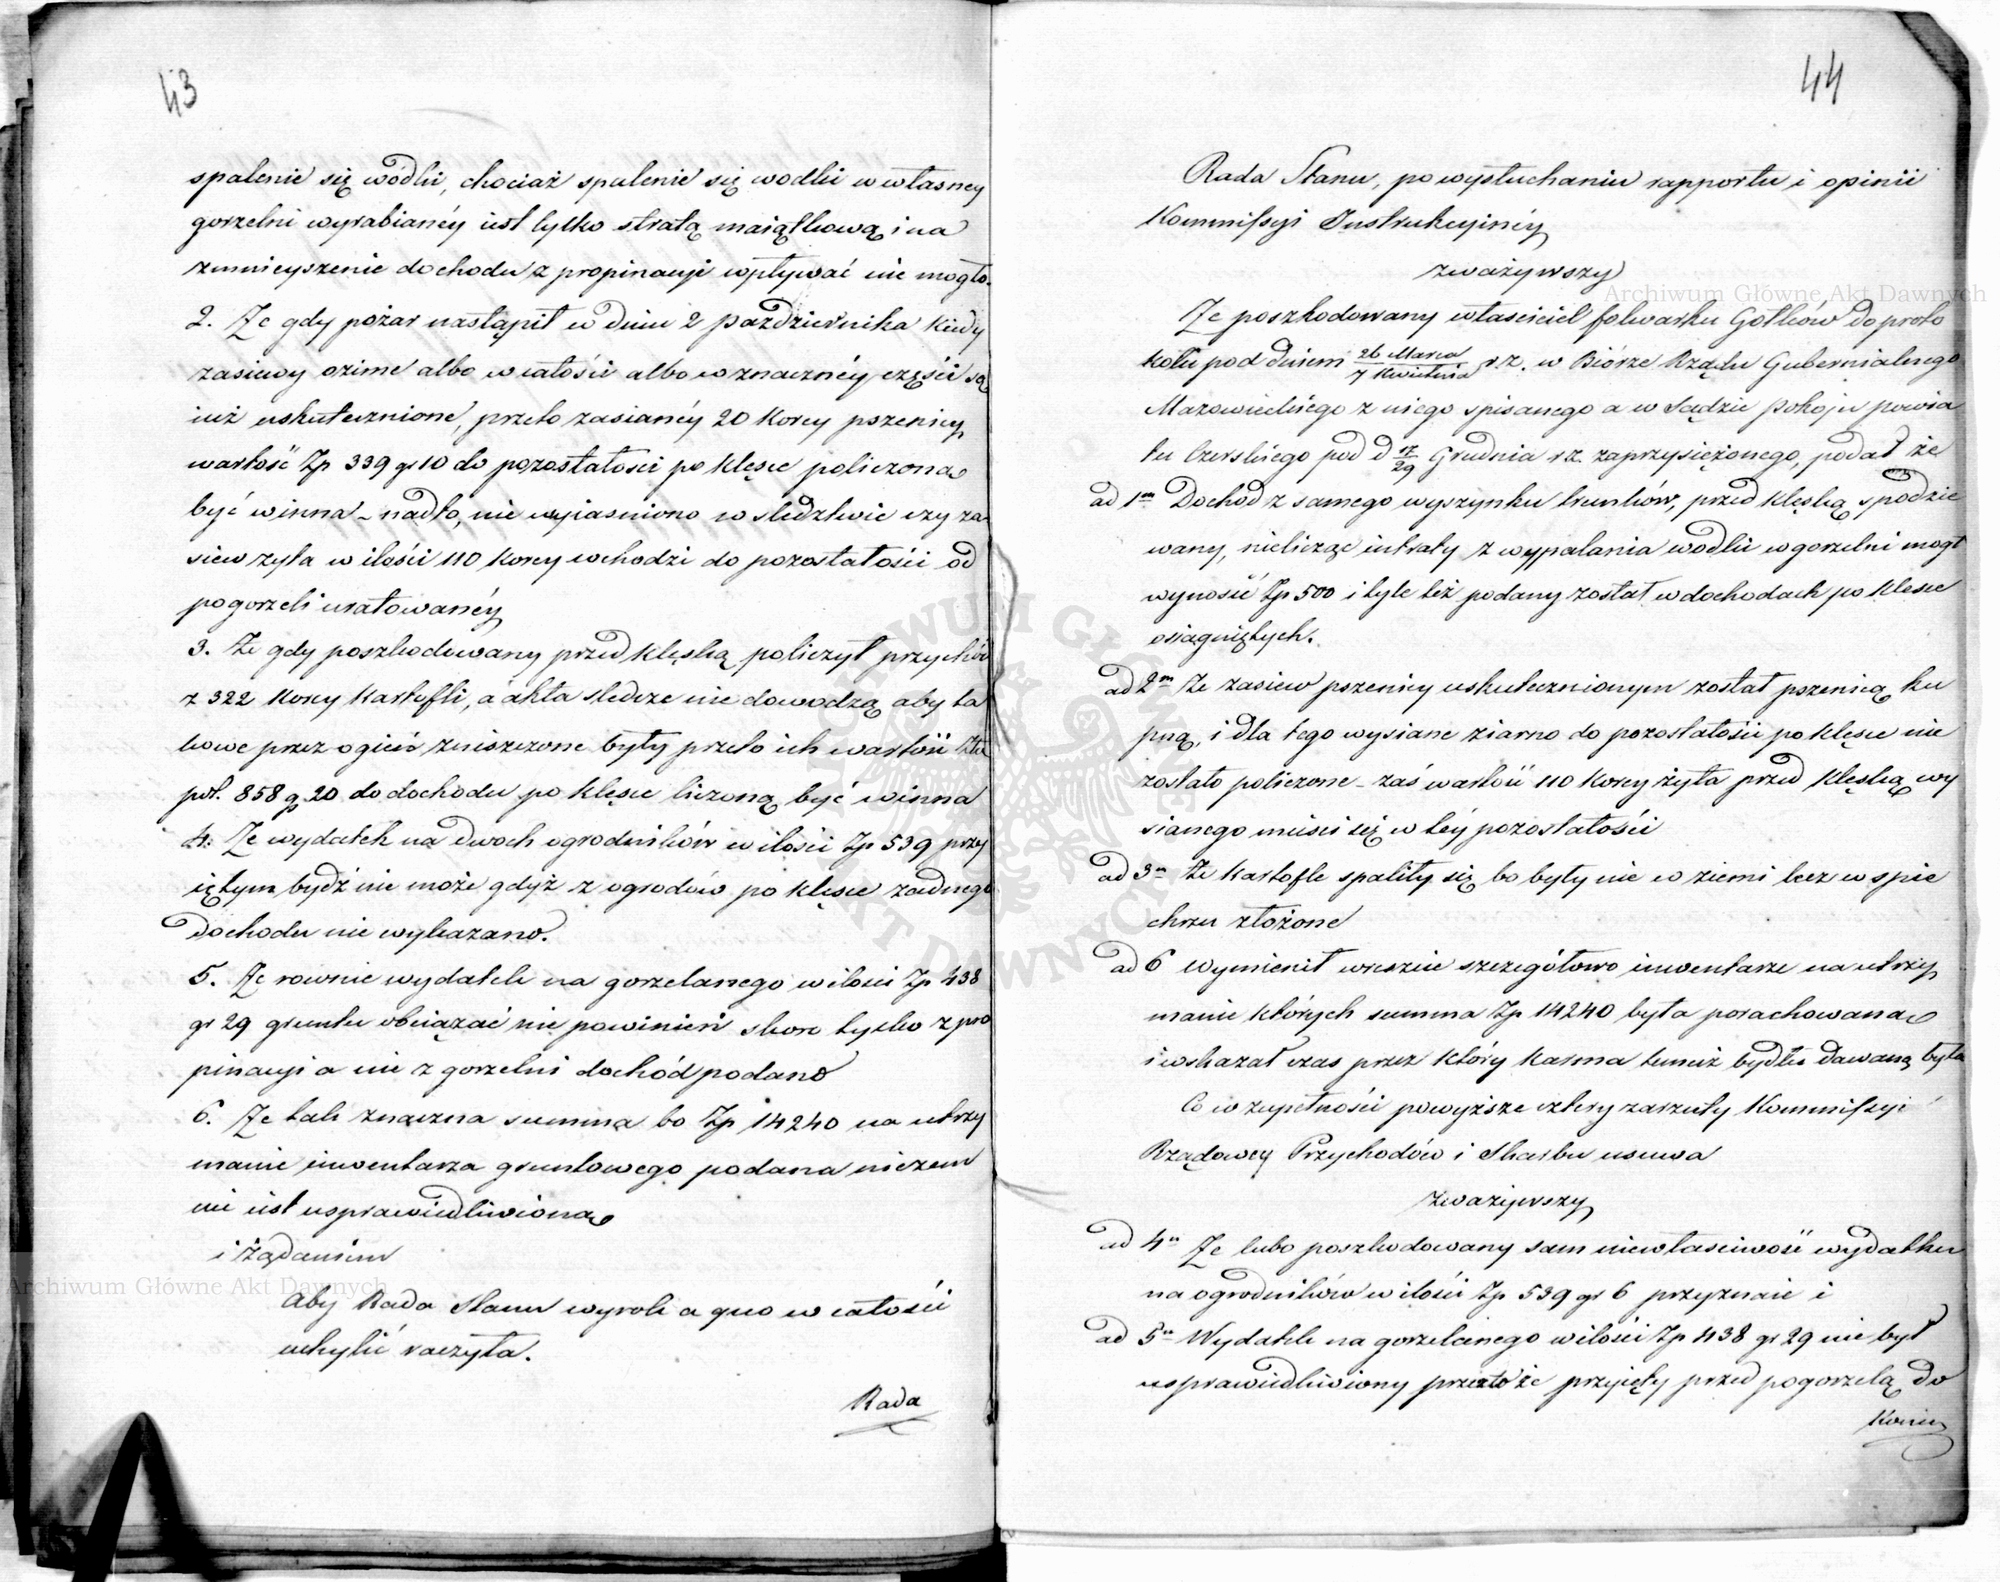 43
spalenie się wódki, chociaż spalenie się wodki w własney
gorzelni wyrabianéy iest tylko stratą maiątkową i na
zmnieyszenie dochodu z propinacyi wpływać nie mogło.
2. Że gdy pożar nastąpił w dniu 2 Października kiedy
zasiewy ozime albo w całości albo w znacznéy części są
iuż uskutecznione, przeto zasianéy 20 Korcy pszenicy
wartość Zp 339 gr 10 do pozostałości po klęsce policzona
być winna – nadto, nie wyiasniono w sledztwie czy za-
siew żyta w ilości 110 Korcy wchodzi do pozostałości od
pogorzeli uratowanéy
3. Że gdy poszkodowany przed klęską policzył przychód
z 322 Korcy Kartofli, a akta sledcze nie dowodzą aby ta
kowe przez ogień zniszczone były przeto ich wartość Złt
pol. 858 g 20 do dochodu po klęsce liczoną być winna
4. Że wydatek na dwoch ogrodników w ilości Zp 539 przy
iętym bydź nie może gdyż z ogrodów po klęsce żadnego
dochodu nie wykazano.
5. Że rownie wydatek na gorzelanego w ilości Zp 438
gr 29 gruntu obciążać nie powinień skoro tylko z pro
pinacyi a nie z gorzelni dochód podano
6. Że tak znaczna summa bo Zp 14240 na utrzy
manie inwentarza gruntowego podana niczem
nie iest usprawiedliwiona
i żądaniem
Aby Rada Stanu wyrok a quo w całości
uchylić raczyła.
Rada
44
Rada Stanu, po wysłuchaniu rapportu i opinii
Kommissyi Instrukcyinéy
zważywszy
Że poszkodowany właściciel folwarku Gołków do proto
kołu pod dniem 26 Marca / 7 Kwietnia r.z. w Biórze Rządu Gubernialnego
Mazowieckiego z niego spisanego a w Sądzie Pokoju powia
tu Czerskiego pod d 17/29 Grudnia r.z. zaprzysiężonego, podał że
ad 1m Dochod z samego wyszynku trunków, przed klęską spodzie
wany, nielicząc intraty z wypalania wodki w gorzelni mogł
wynosić Zp 500 i tyle też podany został w dochodach po klęsce
osiągniętych.
ad 2m Że zasiew pszenicy uskutecznionym został pszenicą ku
pną, i dla tego wysiane ziarno do pozostałości po klęsce nie
zostało policzone – zaś wartość 110 Korcy żyta przed klęską wy
sianego mieści się w téy pozostałości
ad 3m Że kartofle spaliły się bo były nie w ziemi lecz w spie
chrzu złożone
ad 6 Wymienił wreszcie szczegółowo inwentarze na utrzy
manie których summa Zp 14240 była porachowana
i wskazał czas przez który karma temuż bydłu dawaną była
Co w zupełności powyższe cztery zarzuty Kommissyi
Rządowey Przychodów i Skarbu usuwa
zważywszy
ad 4m Że lubo poszkodowany sam niewłasciwość wydatku
na ogrodników w ilości Zp 539 gr 6 przyznaie i
ad 5m Wydatek na gorzelanego w ilości Zp 438 gr 29 nie był
usprawiedliwiony przeto że przyięty przed pogorzelą do
Archiwum Główne Akt Dawnych
Archiwum Główne Akt Dawnych
ARCHIWUM GŁÓWNE AKT DAWNYCH